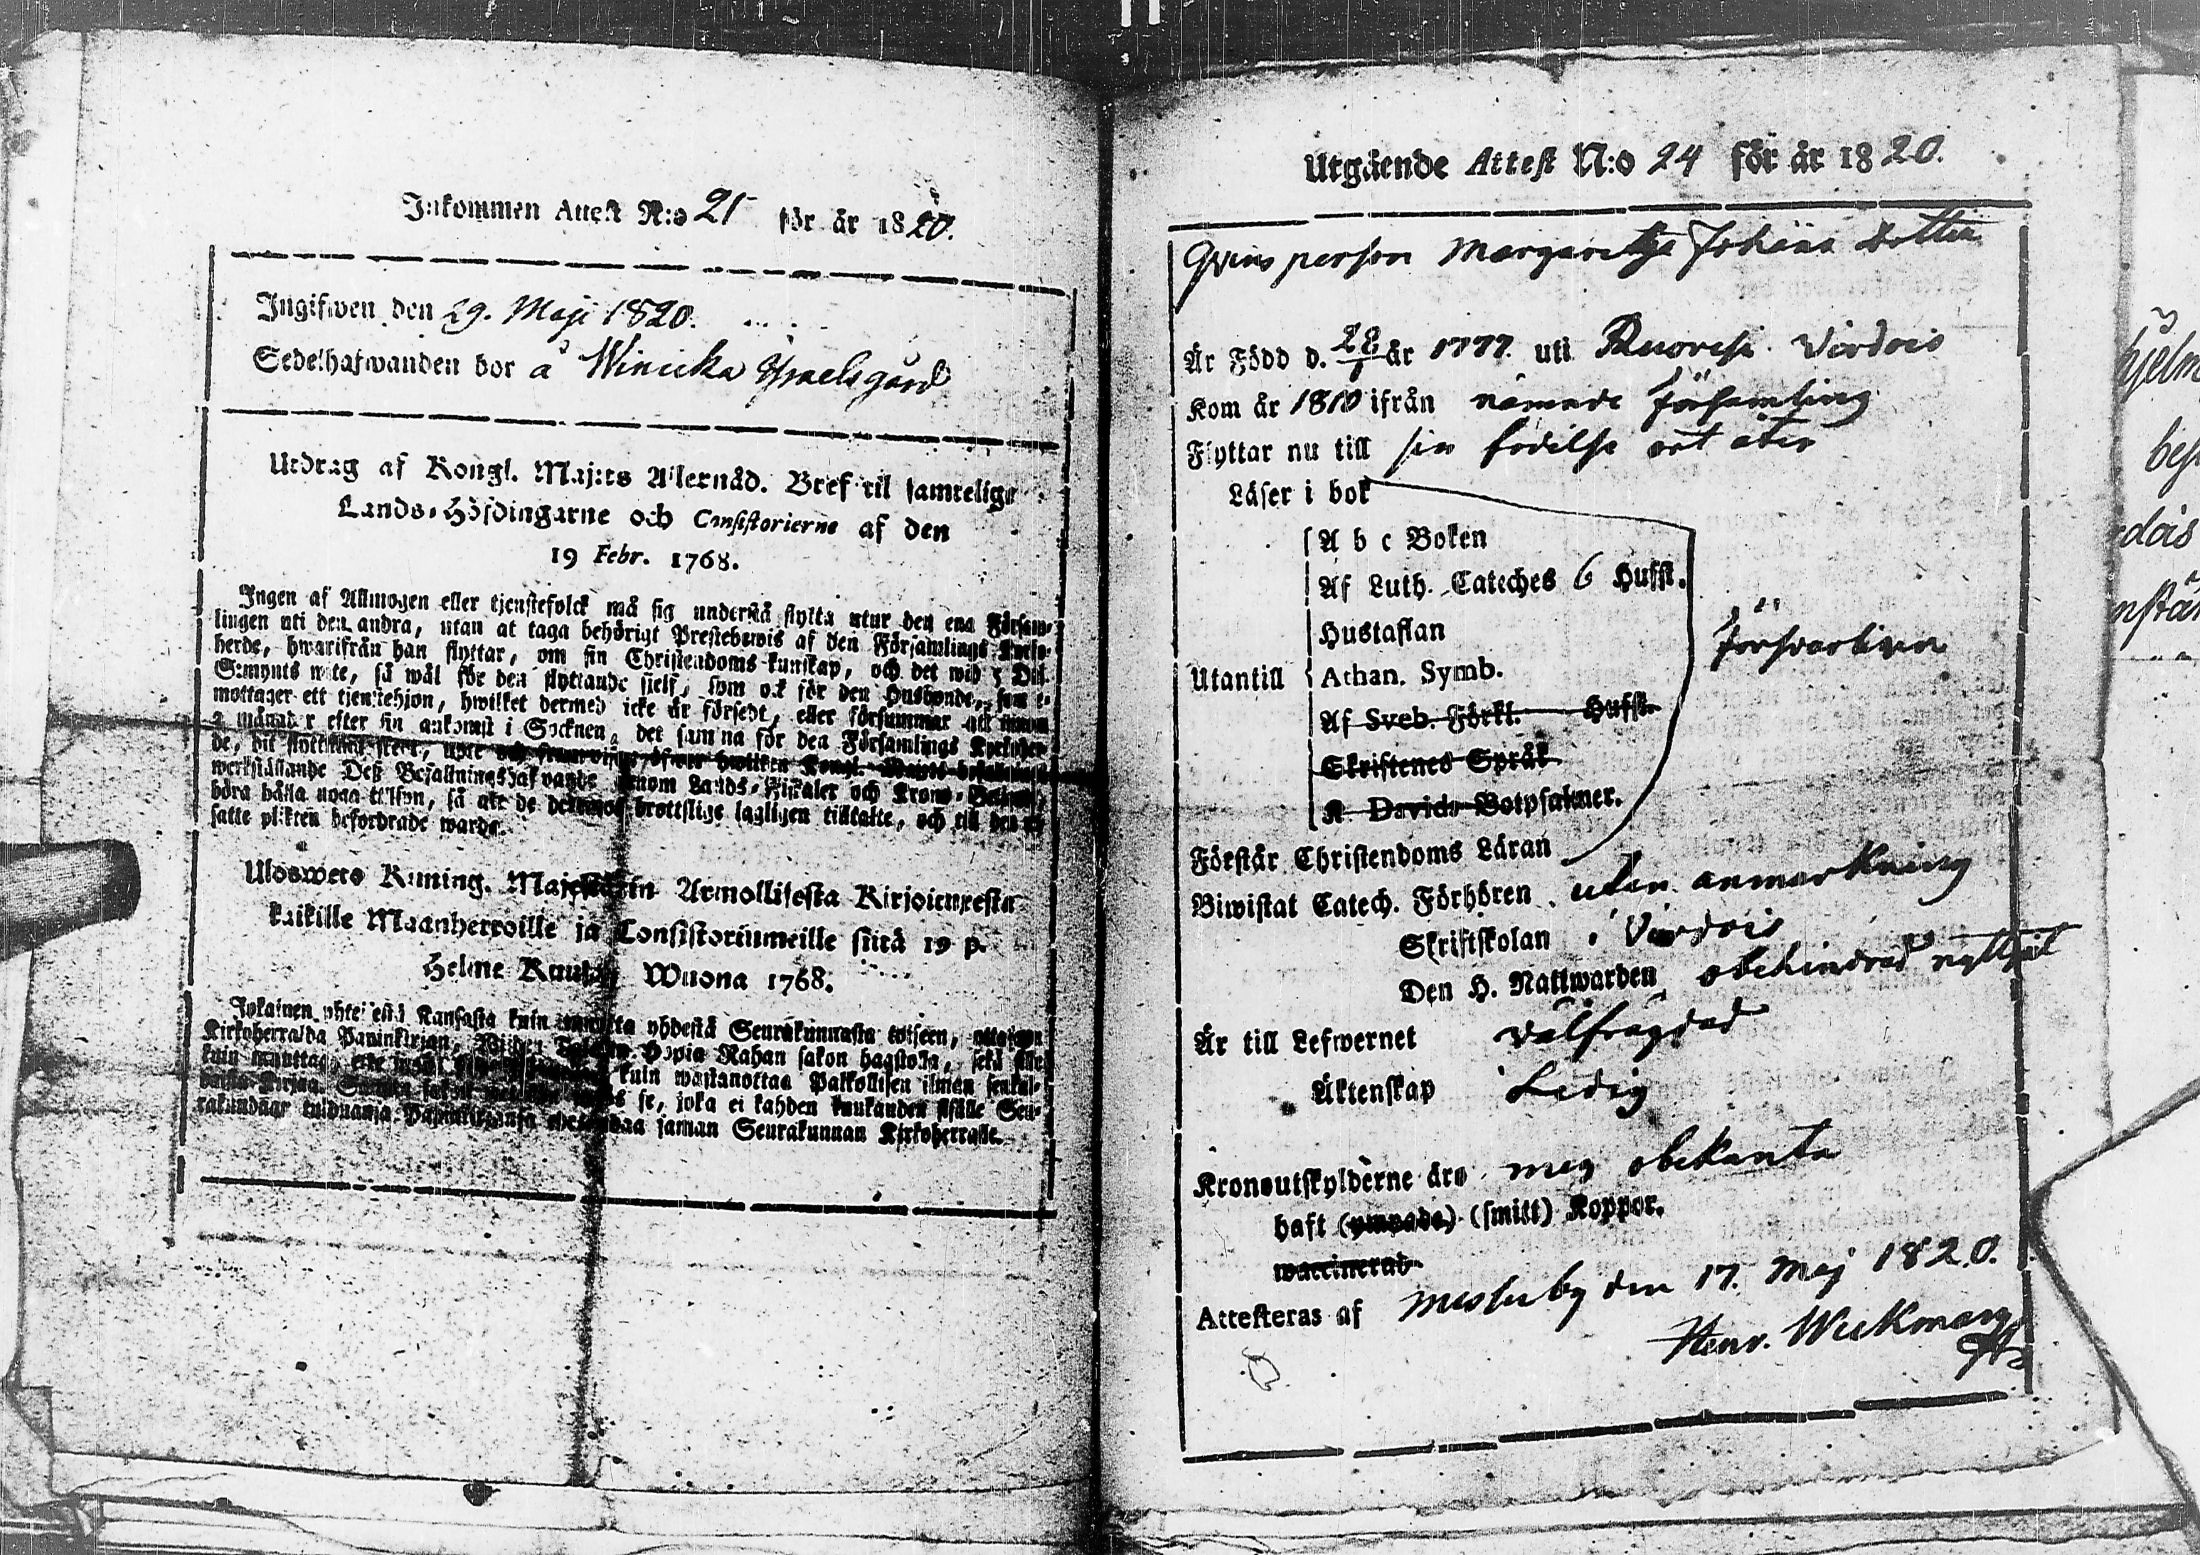 Inkommen Attest N:o 21 för år 1820.
Ingifwen den 29. Maji 1820.
Sedelhafwanden bor å Wincka Israelsgård
Utdrag af Kongl. Maj:ts Allernåd. Bref til samtelige
Lands-Höfdingarne och Consistorierne af den
19 Febr. 1768.
Ingen af Allmogen eller tjenstefolck må sig understå flytta utur den ena Försam-
lingen uti den andra, utan at taga behörigt Prestebewis af den Församlings Kyrko-
herde, hwarifrån han flyttar, om sin Christendoms kunskap, och det wid 5 Dal.
S:mynts wite, så wäl för den flyttande sielf, som ock för den Husbonde, som e-
mottager ett tjenstehjon, hwilket dermed icke är försedt, eller försummar att innom
2 månader efter sin ankomst i Socknen, det samma för den Församlings Kyrkoher-
de, dit flyttningen skett,
werkställande Deß Befallningshafwande genom Lands-Fiskaler och Krono-Betjent,
böra hålla noga tillsyn, så att de brottslige lagligen tilltalte, och till den ut-
satte plikten befordrade warda.
Ulosweto Kuning. Majestätin Armollisesta Kirjoituxesta
kaikille Maanherroille ja Consistoriumeille siitä 19 p.
Helme Kuuta Wuona 1768.
Jokainen yhteisestä Kansasta kuin muutta yhdestä Seurakunnasta toiseen, ottakoon
Kirkoherralda Papinkirjan, Rahan sakon haastolla, sekä
kuin muuttaa, kuin wastanottaa Palkollisen ilman senkal-
taista Kirjaa. se, joka ei kahden kuukauden sisälle Seu-
rakundaar tulduansa Papinkirjansa saman Seurakunnan Kirkoherralle.
Utgående Attest N:o 24 för år 1820.
Qvins person Margaretha Johans dotter
Är Född d. 28/1 år 1777. uti Ruovesi Virdois
Kom år 1810 ifrån nämnde församling
Flyttar nu till sin födelse ort åter
Läser i bok
A b c Boken
Af Luth. Cateches 6 Hufst.
Hustaflan
försvarligen
Utantill Athan. Symb.
Af Sveb. Förkl. Hufst.
Skriftenes Språk
K Davids Botpsalmer.
Förstår Christendoms Läran
Biwistat Catech. Förhören utan anmärkning
Skriftskolan i Virdois
Den H. Nattwarden obehindrad nyttjat
Är till Lefwernet välfrägdad
Äktenskap Ledig
Kronoutskylderne äro meg obekanta
haft (ympade) (smitt) Koppor.
waccinerad
Attesteras af Messuby den 17. Maj 1820.
Henr. Weckman
hjelm
dois